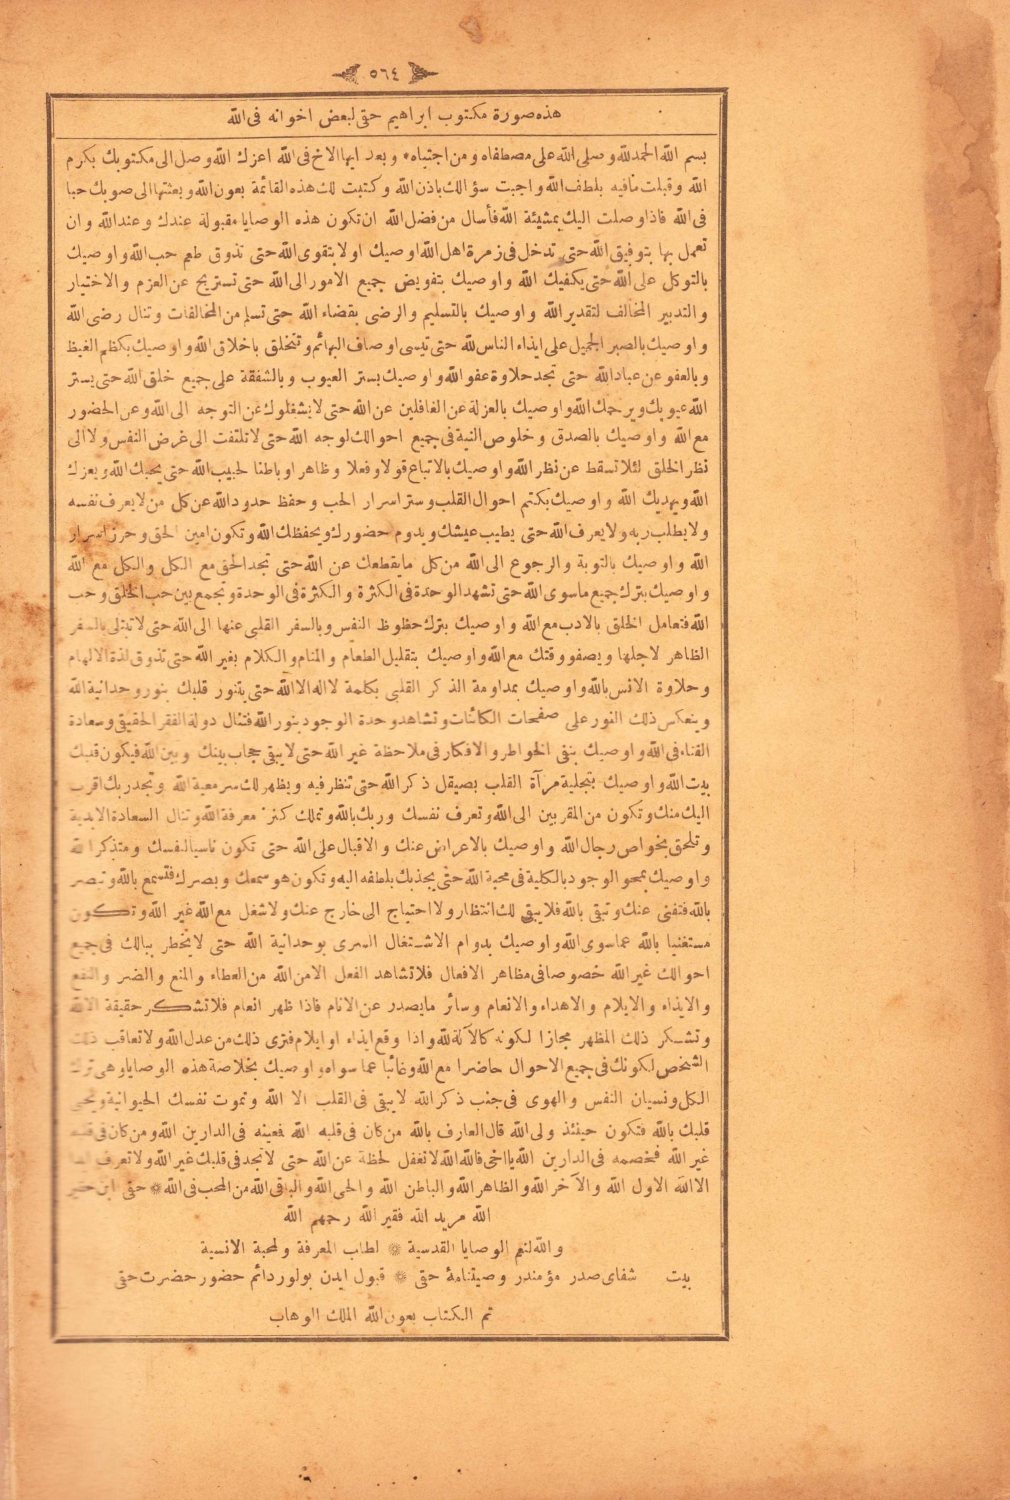 ٥٦٤
هذه صورة مكتوب ابراهيم حقى لبعض اخوانه فى الله
بسم الله الحمدلله وصلى الله على مصطفاه ومن اجتباه وبعد ايها الاخ فى الله اعزك الله وصل الى مكتوبك بكرم
الله وقبلت مافيه بلطف الله واجبت سؤالك باذن الله وكتبت لك هذه القائمة بعون الله وبعثتها الى صوبك حبا
فى الله فاذا وصلت اليك بمشيئة الله فأسأل من فضل الله ان تكون هذه الوصايا مقبولة عندك وعند الله وان
تعمل بها بتوفيق الله حتى تدخل فى زمرة اهل الله اوصيك اولا بتقوى الله حتى تذوق طعم حب الله واوصيك
بالتوكل على الله حتى يكفيك الله واوصيك بتفويض جميع الامور الى الله حتى تستريح عن العزم والاختيار
والتدبير المخالف لتقدير الله واوصيك بالتسليم والرضى بقضاء الله حتى تسلم من المخالفات وتنال رضى الله
واوصيك بالصبر الجميل على ايذاء الناس لله حتى تيسى اوصاف البهائم وتتخلق باخلاق الله واوصيك بكظم الغيظ
وبالعفو عن عباد الله حتى تجد حلاوة عفو الله واوصيك بستر العيوب وبالشفقة على جميع خلق الله حتى يستر
الله عيوبك ويرحمك الله واوصيك بالعزلة عن الغافلين عن الله حتى لايشغلوك عن التوجه الى الله وعن الحضور
مع الله واوصيك بالصدق وخلوص النية فى جميع احوالك لوجه الله حتى لاتلتفت الى غرض النفس ولا الى
نظر الخلق لئلا تسقط عن نظر الله واوصيك بالاتباع قولا وفعلا وظاهرا وباطنا لحبيب الله حتى يحبك الله ويعزك
الله ويهديك الله واوصيك بكتم احوال القلب وستر اسرار الحب وحفظ حدود الله عن كل من لايعرف نفسه
ولايطلب ربه ولايعرف الله حتى يطيب عيشك ويدوم حضورك ويحفظك الله وتكون امين الحق وحرز اسرار
الله واوصيك بالتوبة والرجوع الى الله من كل مايقطعك عن الله حتى تجد الحق مع الكل والكل مع الله
واوصيك بترك جميع ماسوى الله حتى تشهد الوحدة فى الكثرة والكثرة فى الوحدة وتجمع بين حب الخلق وحب
الله فتعامل الخلق بالادب مع الله واوصيك بترك حظوظ النفس وبالسفر القلبى عنها الى الله حتى لاتبتلى بالسفر
الظاهر لاجلها ويصفو وقتك مع الله واوصيك بتقليل الطعام والمنام والكلام بغير الله حتى تذوق لذة الالهام
وحلاوة الانس بالله واوصيك بمداومة الذكر القلبى بكلمة لا اله الا الله حتى يتنور قلبك بنور وحدانية الله
وينعكس ذلك النور على صفحات الكائنات وتشاهد وحدة الوجود بنور الله فتنال دولة الفقر الحقيقى وسعادة
الفناء فى الله واوصيك بنفى الخواطر والافكار فى ملاحظة غير الله حتى لا يبقى حجاب بينك وبين الله فيكون قلبك
بيت الله واوصيك بتجلية مرآة القلب بصيقل ذكر الله حتى تنظر فيه ويظهر لك سر معية الله وتجد ربك اقرب
اليك منك وتكون من المقربين الى الله وتعرف نفسك وربك بالله وتملك كنز معرفة الله وتنال السعادة الابدية
وتلحق بخواص رجال الله واوصيك بالاعراض عنك والاقبال على الله حتى تكون ناسيا لنفسك ومتذكرا لله
واوصيك بمحو الوجود بالكلية فى محبة الله حتى يجذبك بلطفه اليه وتكون هو سمعك وبصرك فتسمع بالله وتبصر
بالله فتفنى عنك وتبقى بالله فلا يبقى لك انتظار ولا احتياج الى خارج عنك ولا شغل مع الله غير الله وتكون
مستغنيا بالله عما سوى الله واوصيك بدوام الاشتغال السرى بوحدانية الله حتى لايخطر ببالك فى جميع
احوالك غير الله خصوصا فى مظاهر الافعال فلا تشاهد الفعل الا من الله من العطاء والمنع والضر والنفع
والايذاء والايلام والاهداء والانعام وسائر مايصدر عن الانام فاذا ظهر انعام فلا تشكر حقيقة الا الله
وتشكر ذلك المظهر مجازا لكونه كالآلة لله واذا وقع ايذاء او ايلام فترى ذلك من عدل الله ولا تعاقب ذلك
الشخص لكونك فى جميع الاحوال حاضرا مع الله وغائبا عما سواه واوصيك بخلاصة هذه الوصايا وهى ترك
الكل ونسيان النفس والهوى فى جنب ذكر الله لا يبقى فى القلب الا الله وتموت نفسك الحيوانية ويحيى
قلبك بالله فتكون حينئذ ولى الله قال العارف بالله من كان فى قلبه الله فعينه فى الدارين الله ومن كان فى قلبه
غير الله فخصمه فى الدارين الله يا اخى فالله الله لاتغفل لحظة عن الله حتى لاتجد فى قلبك غير الله ولا تعرف
الا الله الاول الله والآخر الله والظاهر الله والباطن الله والحى الله والباقى الله من المحب فى الله ۞ حقى ابن
الله مريد الله فقير الله رحمهم الله
والله لنعم الوصايا القدسية ۞ لطلب المعرفة ولمحبة الانسية
بيت شفاى صدر مؤمندر وصيتنامۀ حقى ۞ قبول ايدن بولور دائم حضور حضرت حقى
تم الكتاب بعون الله الملك الوهاب